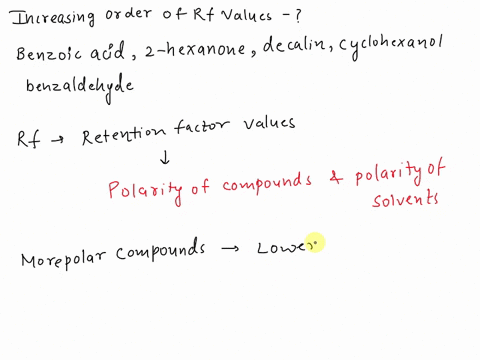 Increasing order of Rf values - ?
Benzoic acid, 2-hexanone, decalin, cyclohexanol
benzaldehyde
Rf → Retention factor values
↓
Polarity of compounds & polarity of
solvents
Morepolar compounds → Lower